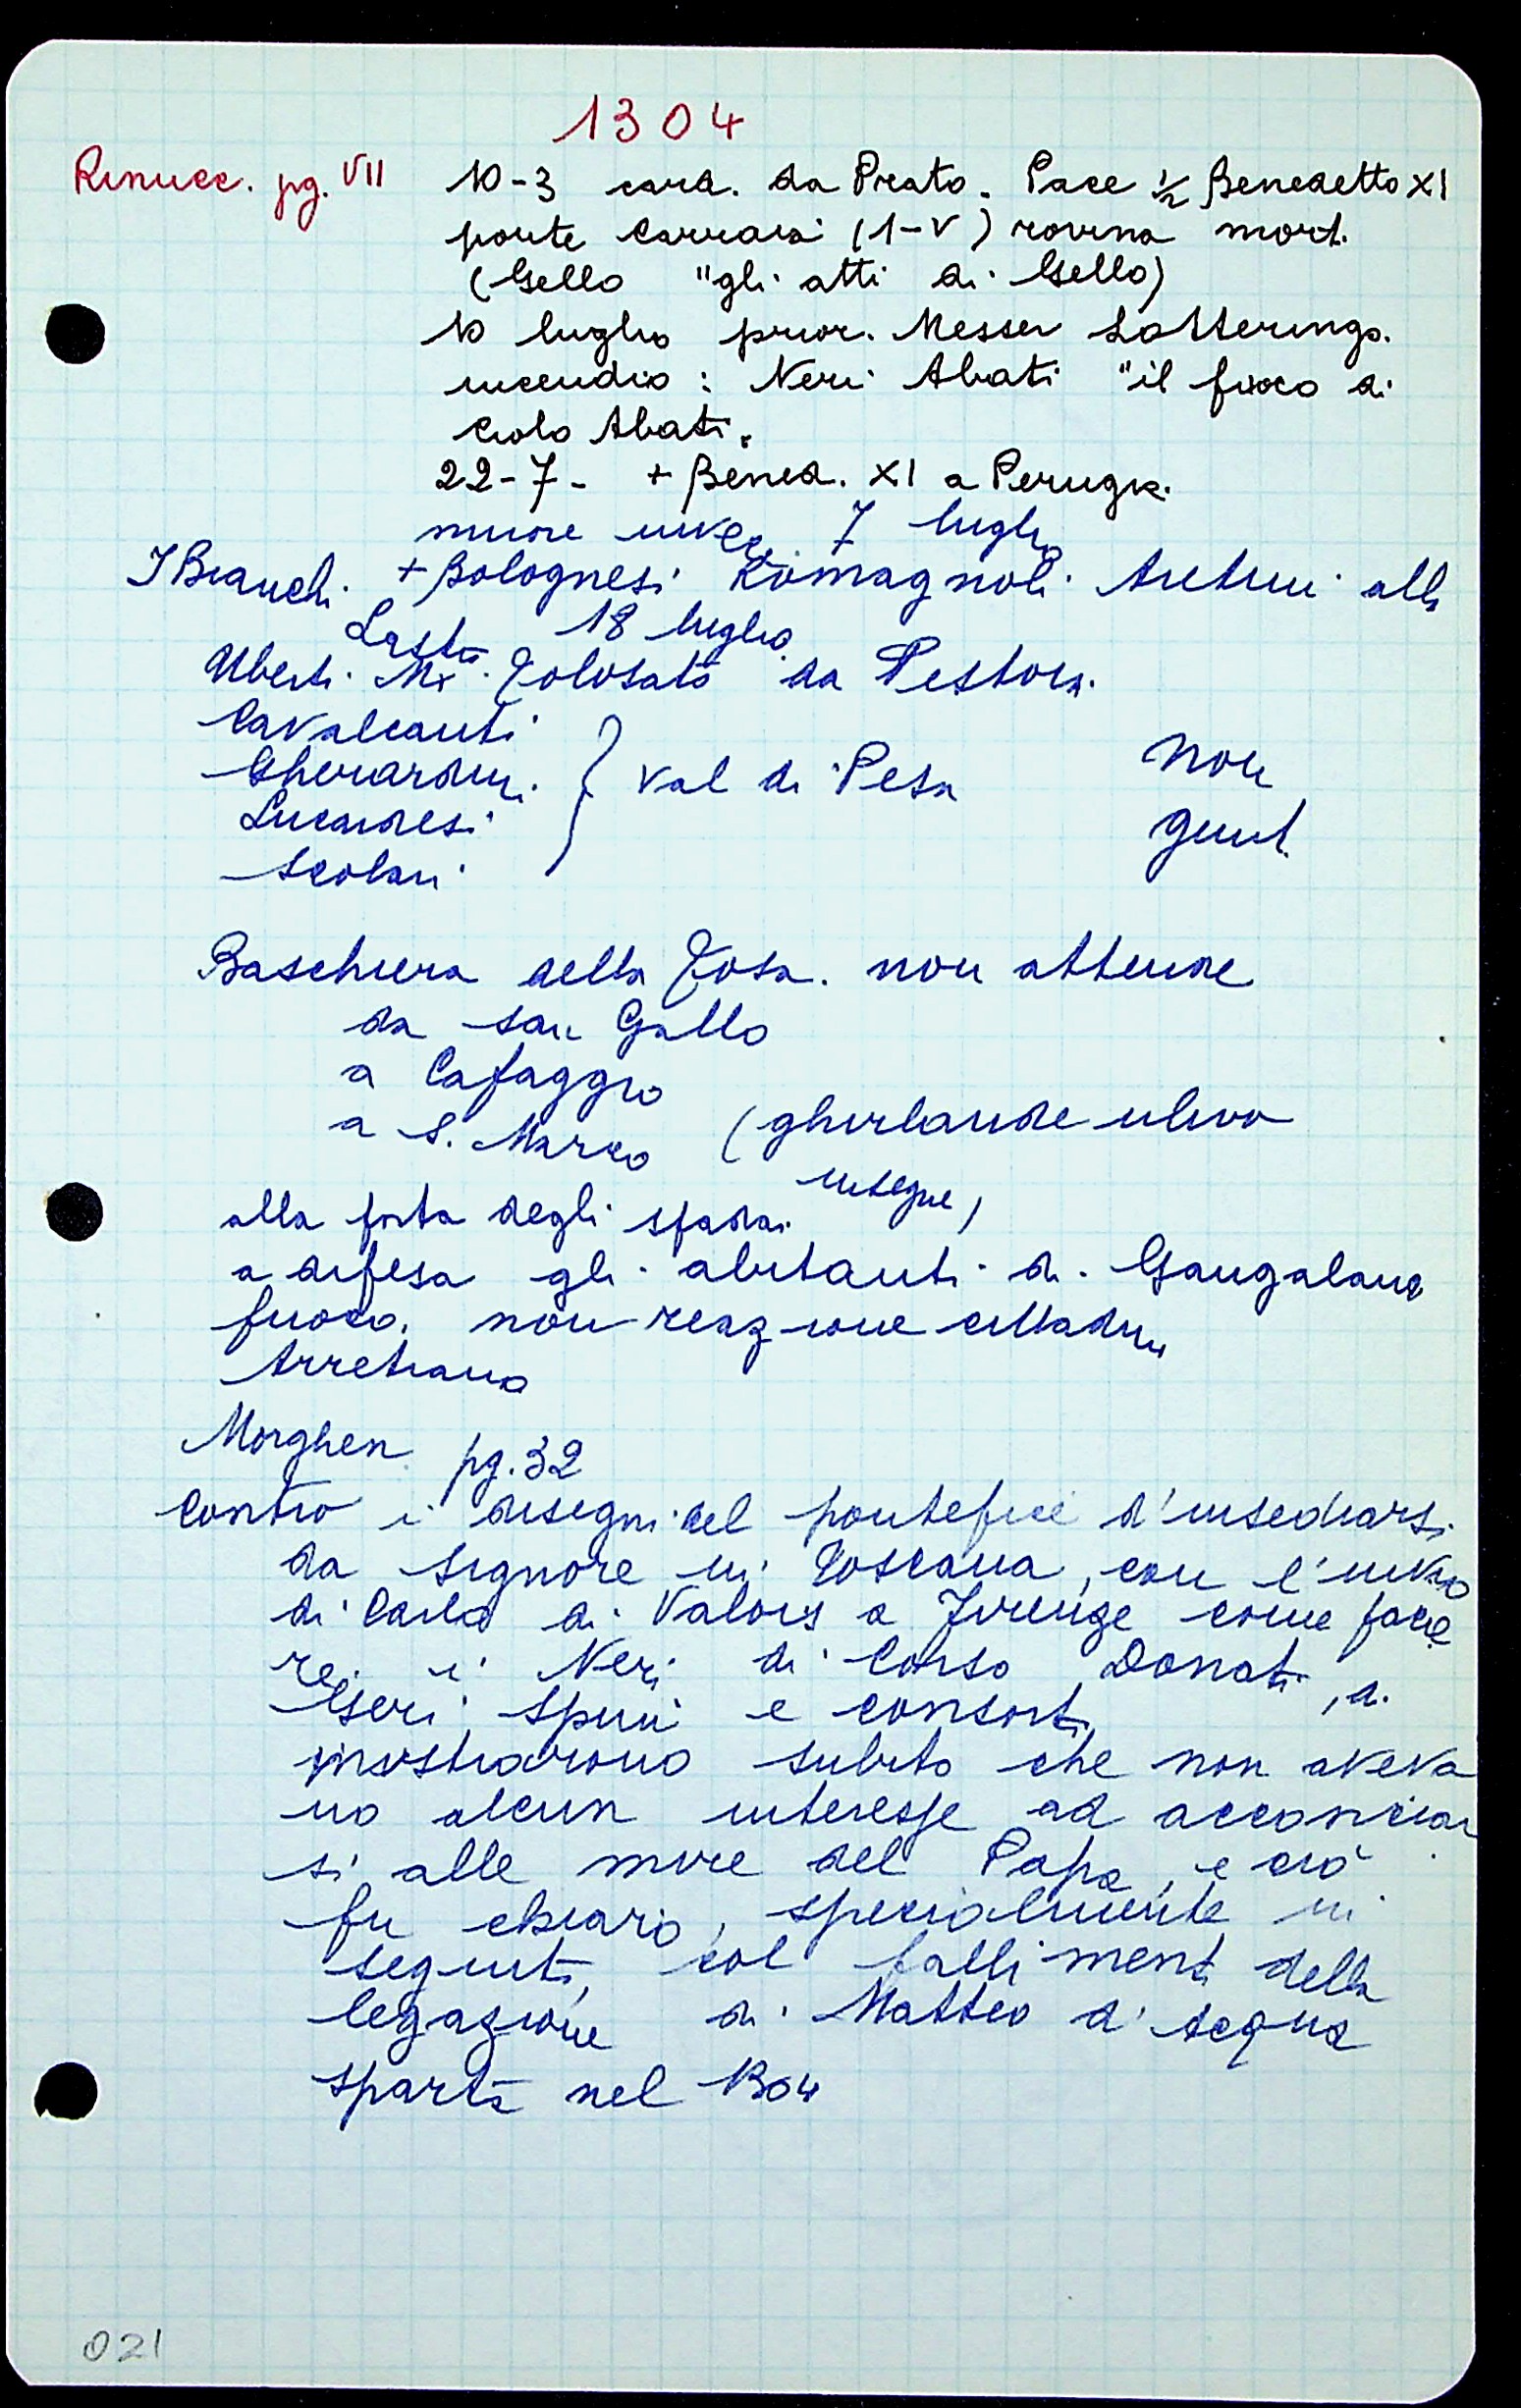 1304
Rinucc. pg. VII 10-3 card. da Prato. Pace ½ Benedetto XI
ponte Carraia (1-V) rovina mort.
(Gello "gli atti di Gello)
10 luglio prior. Messer Lotteringo.
incendio: Neri Abati "il fuoco di
Ciolo Abati.
22-7- + Bened. XI a Perugia.
muore invece 7 luglio
I Bianchi + Bolognesi Romagnoli Aretini alla
Lastra 18 luglio
Uberti Mr. Tolosato da Pistoia.
Cavalcanti
Gherardini
Lucardesi
Scolari
} Val di Pesa
non
giunt.
Baschiera della Tosa. non attende
da San Gallo
a Cafaggio
a S. Marco (ghirlande ulivo
insegne)
alla porta degli spadai
a difesa gli abitanti di Gangaland
fuoco. non reazione cittadini
Arretrano
Morghen pg. 32
Contro i disegni del pontefice d'insediarsi
da signore in Toscana, con l'invio
di Carlo di Valois a Firenze come pacie
re i Neri di Corso Donati, di
Geri Spini e consorti
mostrarono subito che non aveva
no alcun interesse ad acconciar
si alle mire del Papa, e ciò
fu chiaro, specialmente in
seguito, col falliment della
legazione di Matteo d'Acqua
sparta nel 1304
021